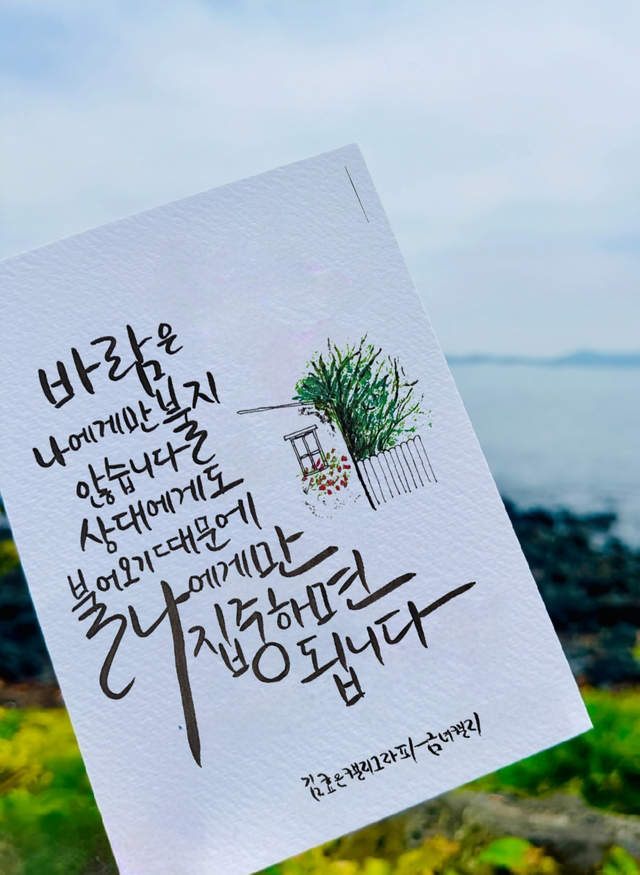 바람은
나에게만 불지
않습니다
상대에게도
불어오기 때문에
나에게만
집중하면
됩니다
김효은캘리그라피-금녀캘리